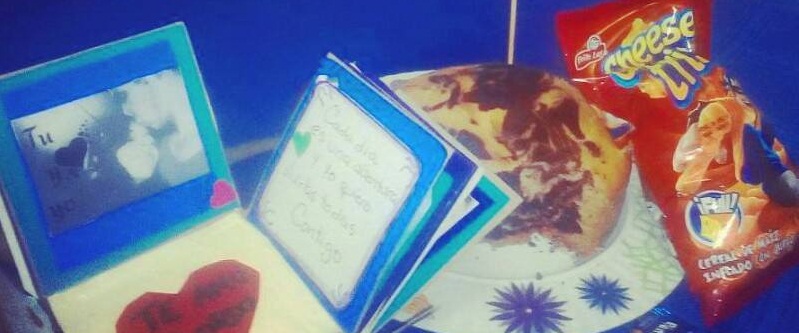 Tu
y
yo
TE AMO
Cada dia
es una aventura
y yo quiero
vivirlas todas
Contigo
Frito Lay
cheese
tris
CEREAL DE MAÍZ
INFLADO CON QUESO